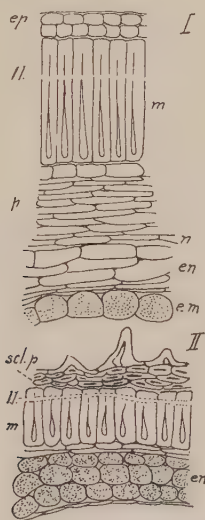 ep
I
l.l.
m
p
n
en
e.m
II
scl.p
l.l.
m
en